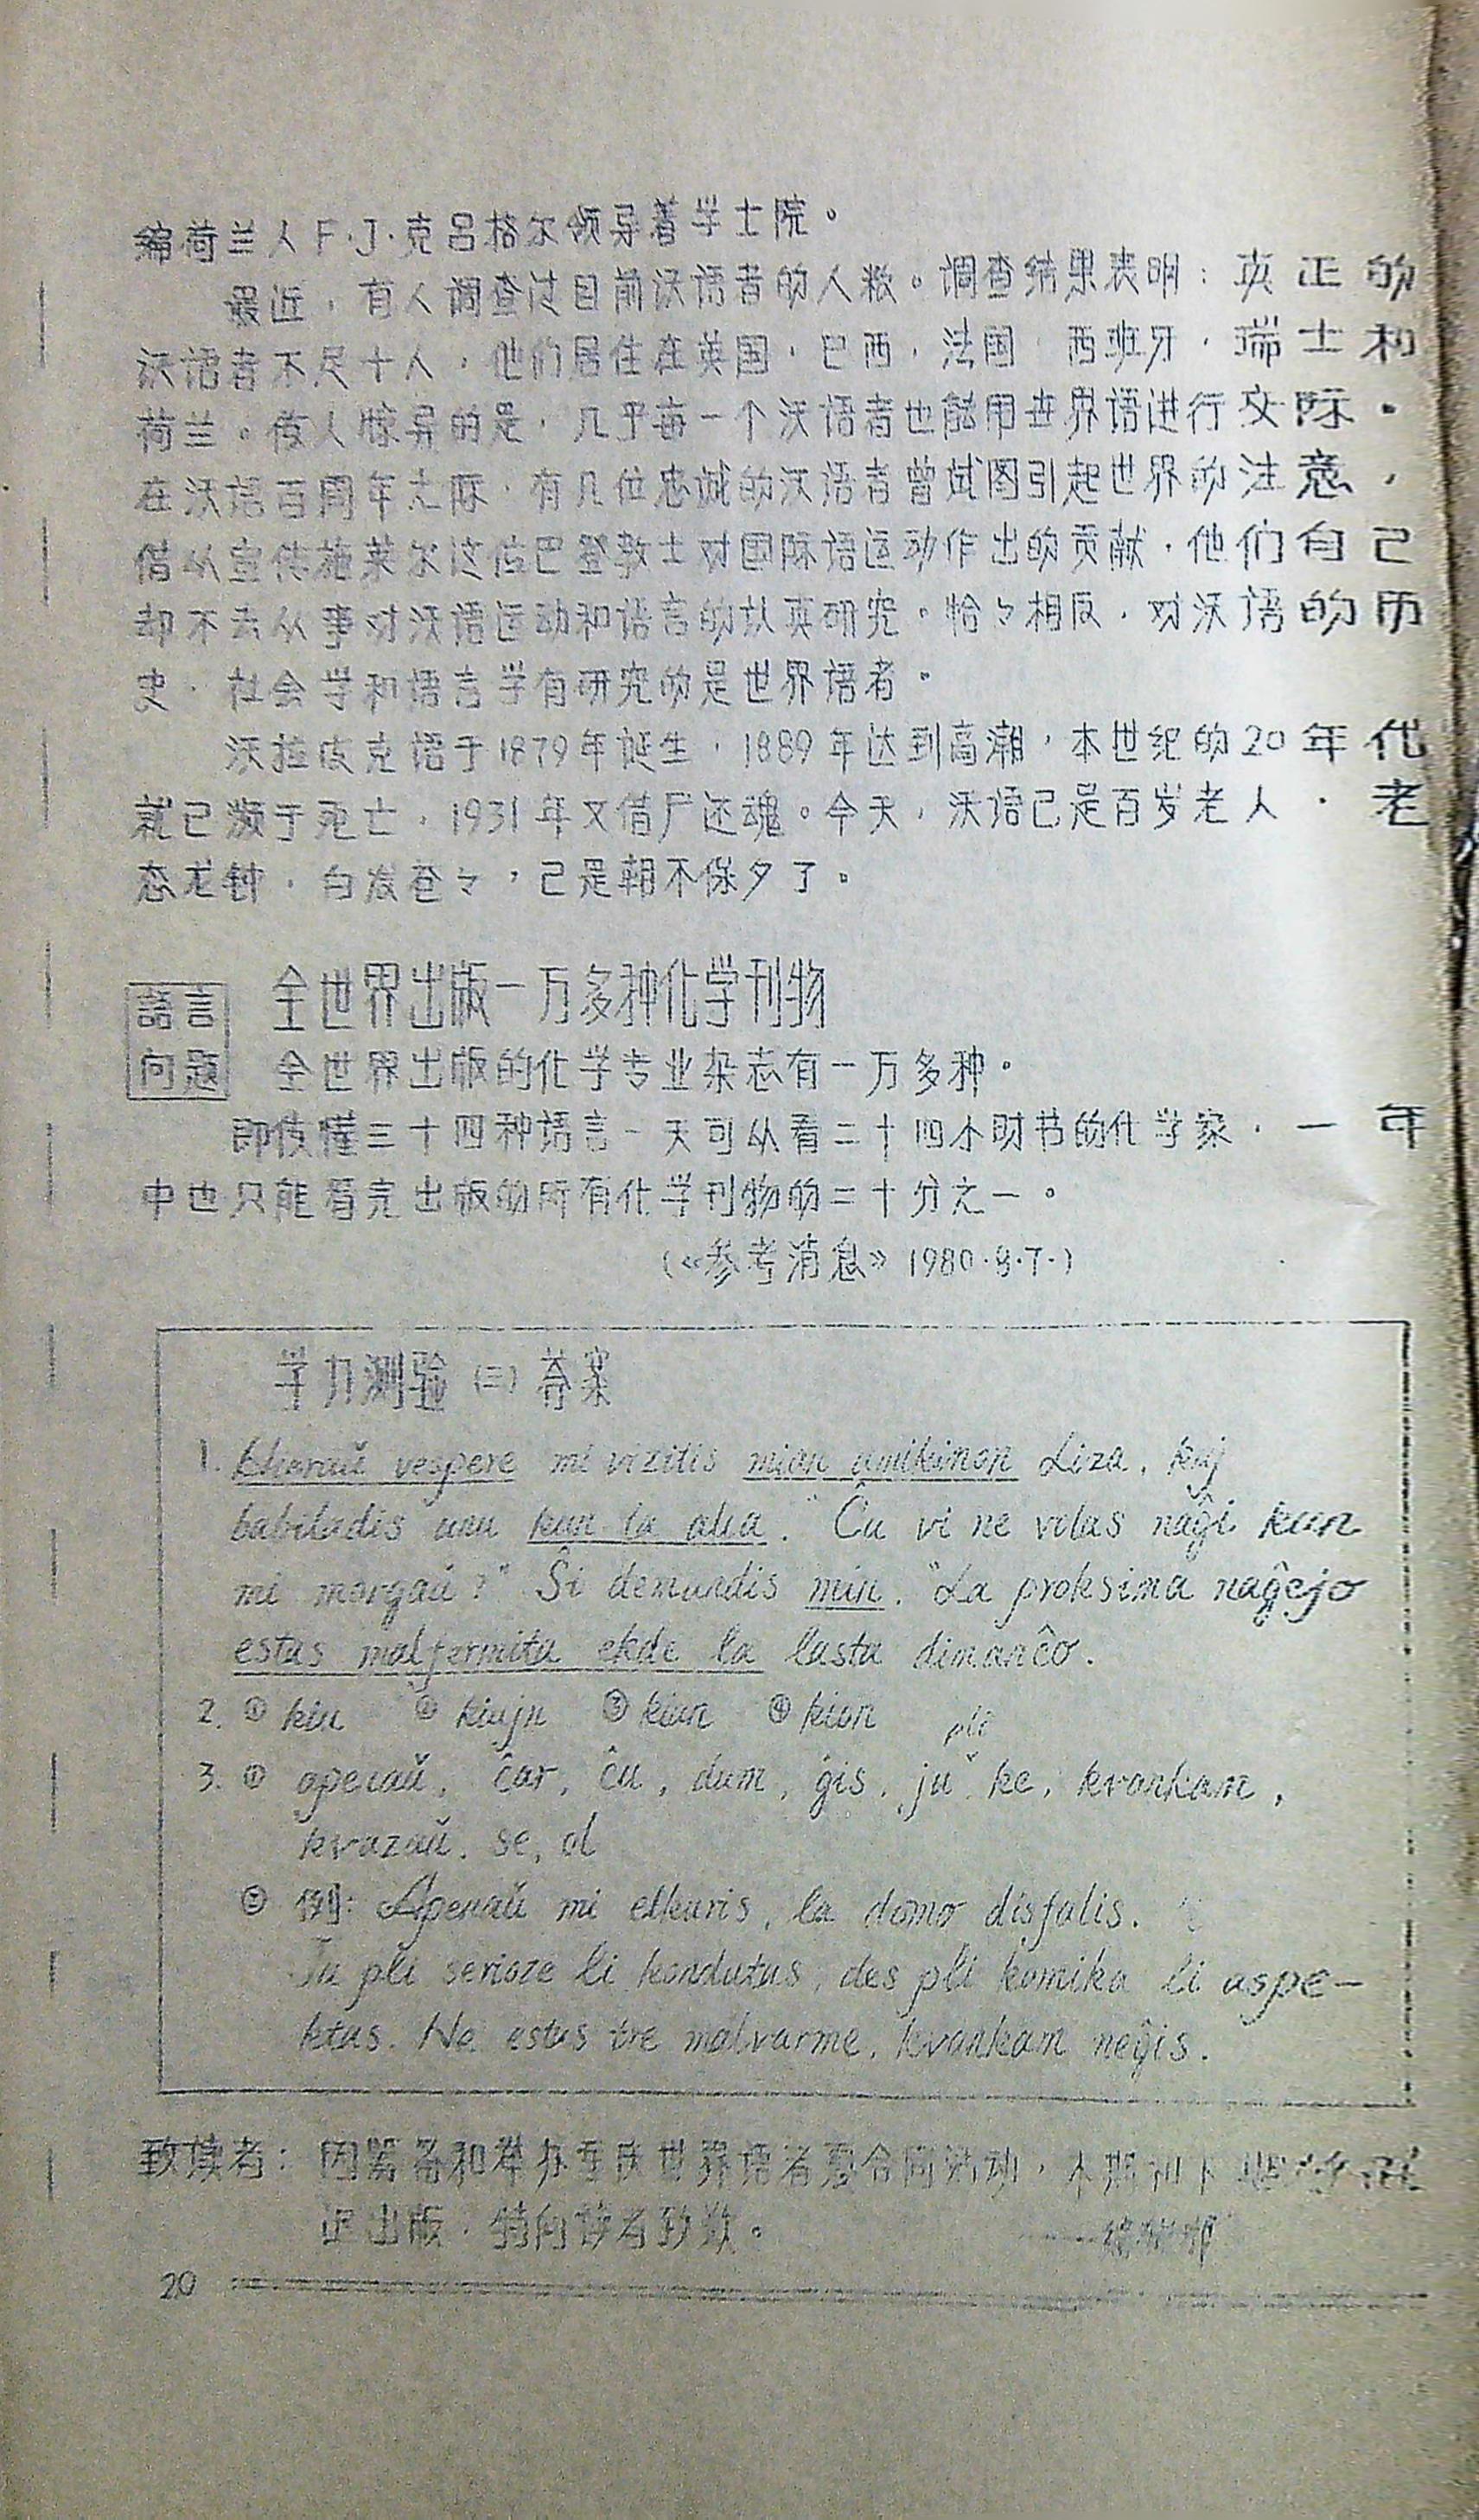 荷兰人F.J.克吕格尔领导着学士院。
最近,有人调查过目前沃语者的人数。调查结果表明:真正的
沃语者不足十人,他们居住在英国,巴西,法国,西班牙,瑞士和
荷兰。使人惊异的是,几乎每一个沃语者也能用世界语进行交际。
在沃语百周年之际,有几位忠诚的沃语者曾试图引起世界的注意,
借以宣传施莱尔这位巴登教士对国际语运动作出的贡献,他们自己
却不去从事对沃语运动和语言的认真研究。恰々相反,对沃语的历
史,社会学和语言学有研究的是世界语者。
沃拉皮克语于1879年诞生,1889年达到高潮,本世纪的20年代
就已濒于死亡,1931年又借尸还魂。今天,沃语已是百岁老人,老
态龙钟,白发苍々,已是朝不保夕了。
語言
问题
全世界出版一万多种化学刊物
全世界出版的化学专业杂志有一万多种。
即使懂三十四种语言一天可以看二十四小时书的化学家,一年
中也只能看完出版的所有化学刊物的二十分之一。
(《参考消息》1980.8.7.)
学力测验(三)答案
1. vespere mi vizitis mian amikinon Liza, kaj
babiladis unu kun la alia. "Ĉu vi ne volas naĝi kun
mi morgaŭ?" Ŝi demandis min. "La proksima naĝejo
estas malfermita ekde la lasta dimanĉo.
2. ① kiu ② kiujn ③ kiun ④ kion
3. ① apenaŭ, ĉar, ĉu, dum, ĝis, ju pli ke, kvankam,
kvazaŭ, se, ol
② 例: Apenaŭ mi elkuris, la domo disfalis.
Ju pli serioze li kondutas, des pli komika li aspe-
ktas. Ne estas tre malvarme, kvankam neĝis.
致读者:因筹备和举办重庆世界语者夏令周活动,本期和下期
出版,特向读者致歉。
——编辑部
20